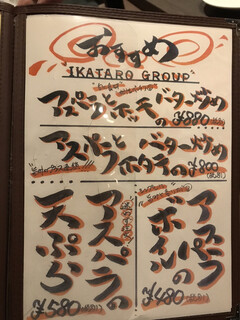 おすすめ
IKATARO GROUP
アスパラとホッキのバター炒め
¥880(税別)
アスパラとホタテのバター炒め
¥800(税別)
アスパラのボイル
¥480(税別)
アスパラの天ぷら
¥580(税別)